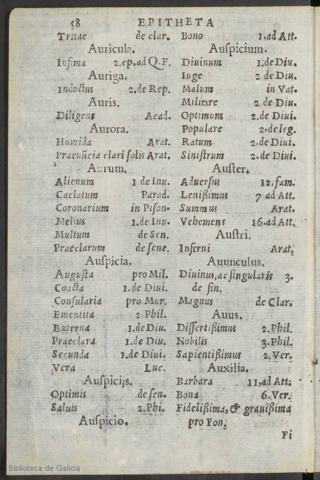 58 EPITHETA
Tritae de clar.
Auricula.
Infima 2.ep.ad Q.F.
Auriga.
Indoctus 2.de Rep.
Auris.
Diligens Acad.
Aurora.
Humida Arat.
Praenũcia clari solis Arat.
Aurum.
Alienum 1.de Inu.
Caelatum Parad.
Coronarium in Pison.
Melius 1.de Inu.
Multum de Sen.
Praeclarum de sene.
Auspicia.
Augusta pro Mil.
Coacta 1.de Diui.
Consularia pro Mur.
Ementita 2.Phil.
Externa 1.de Diu.
Praeclara 1.de Diu.
Secunda 1.de Diui.
Vera Luc.
Auspicijs.
Optimis de sen.
Saluis 2.Phi.
Auspicio.
Bono 1.ad Att.
Auspicium.
Diuinum 1.de Diu.
Iuge 2 de Diu.
Malum in Vat.
Militare 2 de Diu.
Optimum 2.de Diui.
Populare 2.de leg.
Ratum 2.de Diui.
Sinistrum 2.de Diui.
Auster.
Aduersus 12.fam.
Lenissimus 7 ad Att.
Summus Arat.
Vehemens 16.ad Att.
Austri.
Inferni Arat.
Auunculus.
Diuinus, ac singularis 3.
de fin.
Magnus de Clar.
Auus.
Dissertissimus 2.Phil.
Nobilis 3.Phil.
Sapientissimus 2.Ver.
Auxilia.
Barbara 11.ad Att.
Bona 6.Ver.
Fidelissima, & grauissima
pro Fon.
Fi
Biblioteca de Galicia